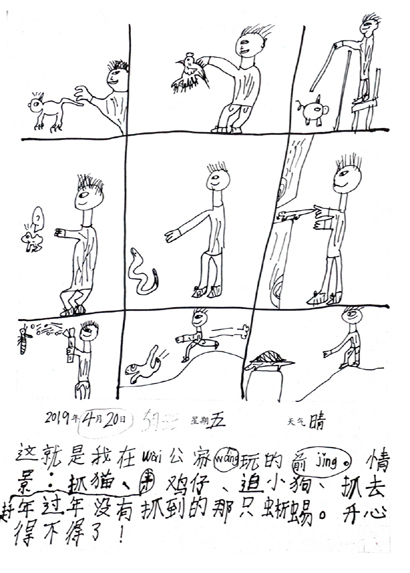 ?
2019年4月20日 星期五 天气 晴
这就是我在wai公家wang玩的前jing。情
景：抓猫、鸡仔、追小狗、抓去
年过年没有抓到的那只蜥蜴。开心
得不得了！